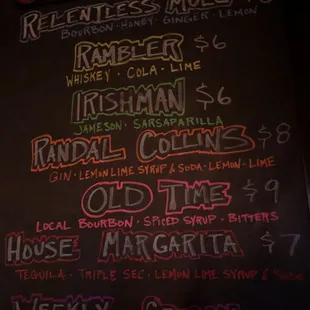 RELENTLESS MULE
BOURBON · HONEY · GINGER · LEMON
RAMBLER $6
WHISKEY · COLA · LIME
IRISHMAN $6
JAMESON · SARSAPARILLA
RANDAL COLLINS $8
GIN · LEMON LIME SYRUP & SODA · LEMON · LIME
OLD TIME $9
LOCAL BOURBON · SPICED SYRUP · BITTERS
HOUSE MARGARITA $7
TEQUILA · TRIPLE SEC · LEMON LIME SYRUP &
WEEKLY